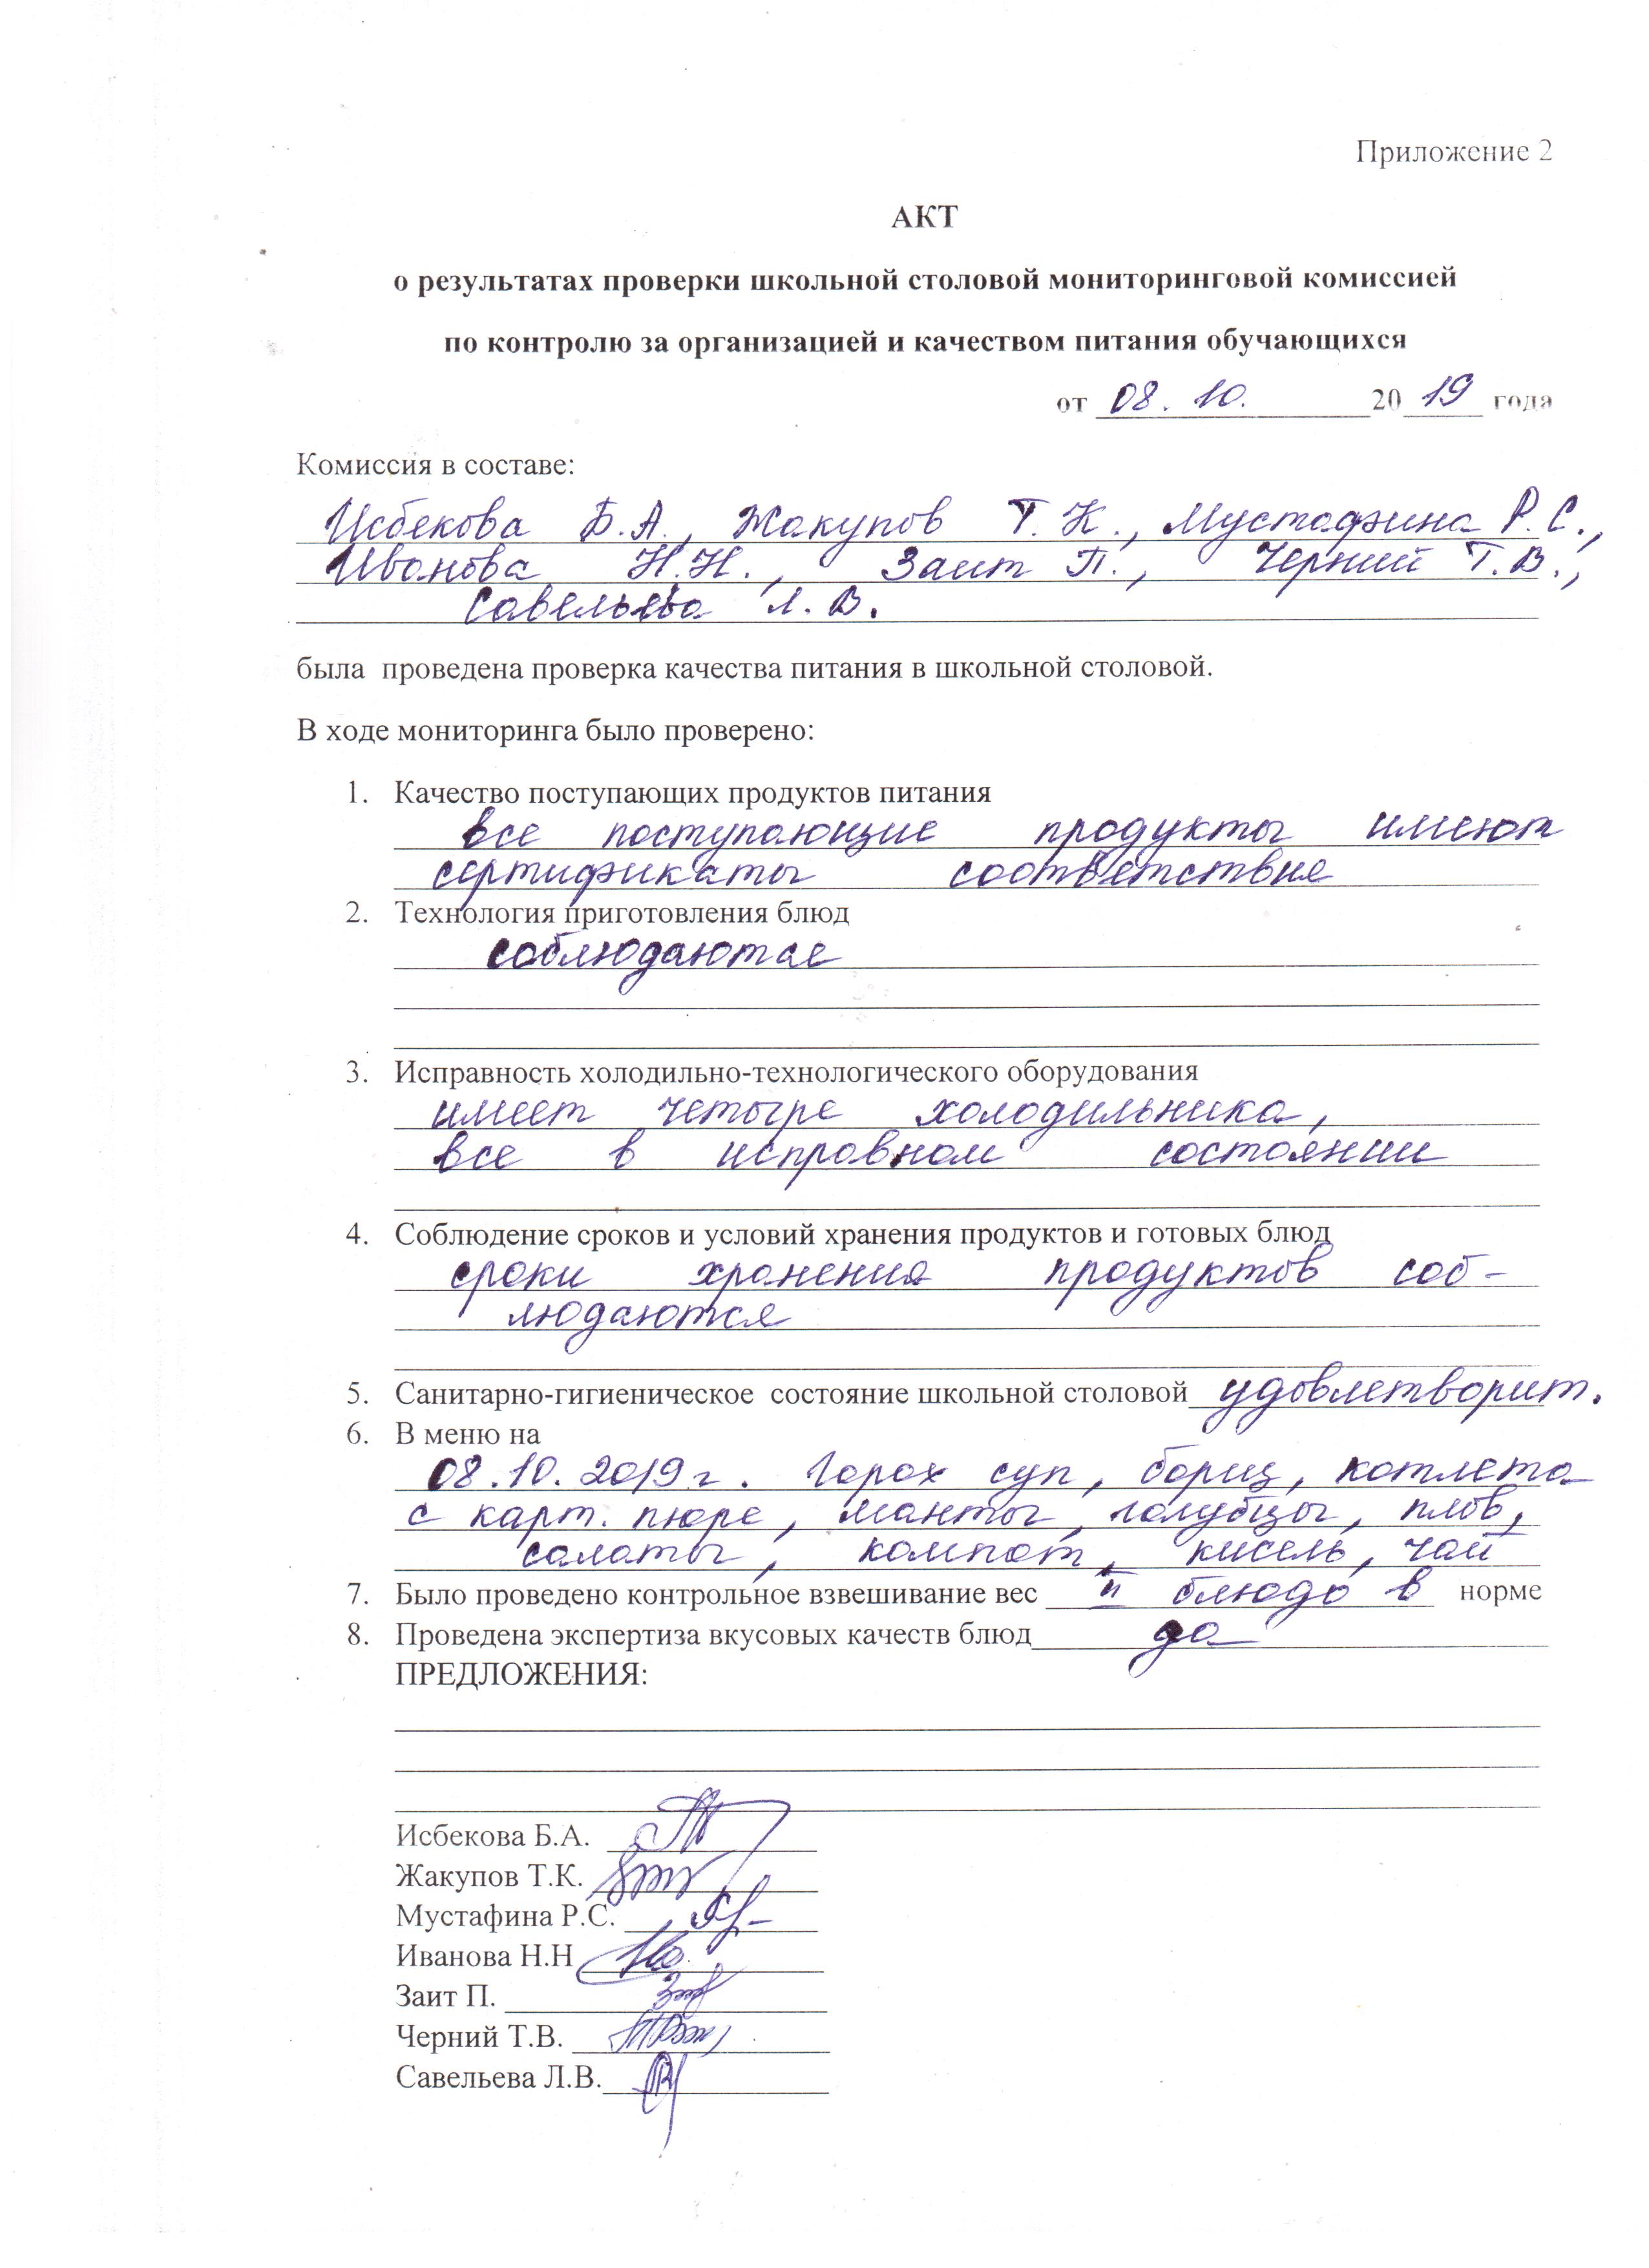 Приложение 2
АКТ
о результатах проверки школьной столовой мониторинговой комиссией
по контролю за организацией и качеством питания обучающихся
от 08. 10. 20 19 года
Комиссия в составе:
Исбекова Б.А., Жакупов Т.К., Мустафина Р.С.,
Иванова Н.Н., Заит П., Черний Т.В.,
Савельева Л.В.
была проведена проверка качества питания в школьной столовой.
В ходе мониторинга было проверено:
1. Качество поступающих продуктов питания
все поступающие продукты имеют
сертификаты соответствие
2. Технология приготовления блюд
соблюдаютае
3. Исправность холодильно-технологического оборудования
имеет четыре холодильника,
все в исправном состоянии
4. Соблюдение сроков и условий хранения продуктов и готовых блюд
сроки хранения продуктов соб-
людаются
5. Санитарно-гигиеническое состояние школьной столовой удовлетворит.
6. В меню на
08.10.2019г. Горох суп, борщ, котлета
с карт. пюре, манты, голубцы, плов,
салаты, компот, кисель, чай
7. Было проведено контрольное взвешивание вес II блюдо в норме
8. Проведена экспертиза вкусовых качеств блюд да
ПРЕДЛОЖЕНИЯ:
Исбекова Б.А.
Жакупов Т.К.
Мустафина Р.С.
Иванова Н.Н
Заит П.
Черний Т.В.
Савельева Л.В.